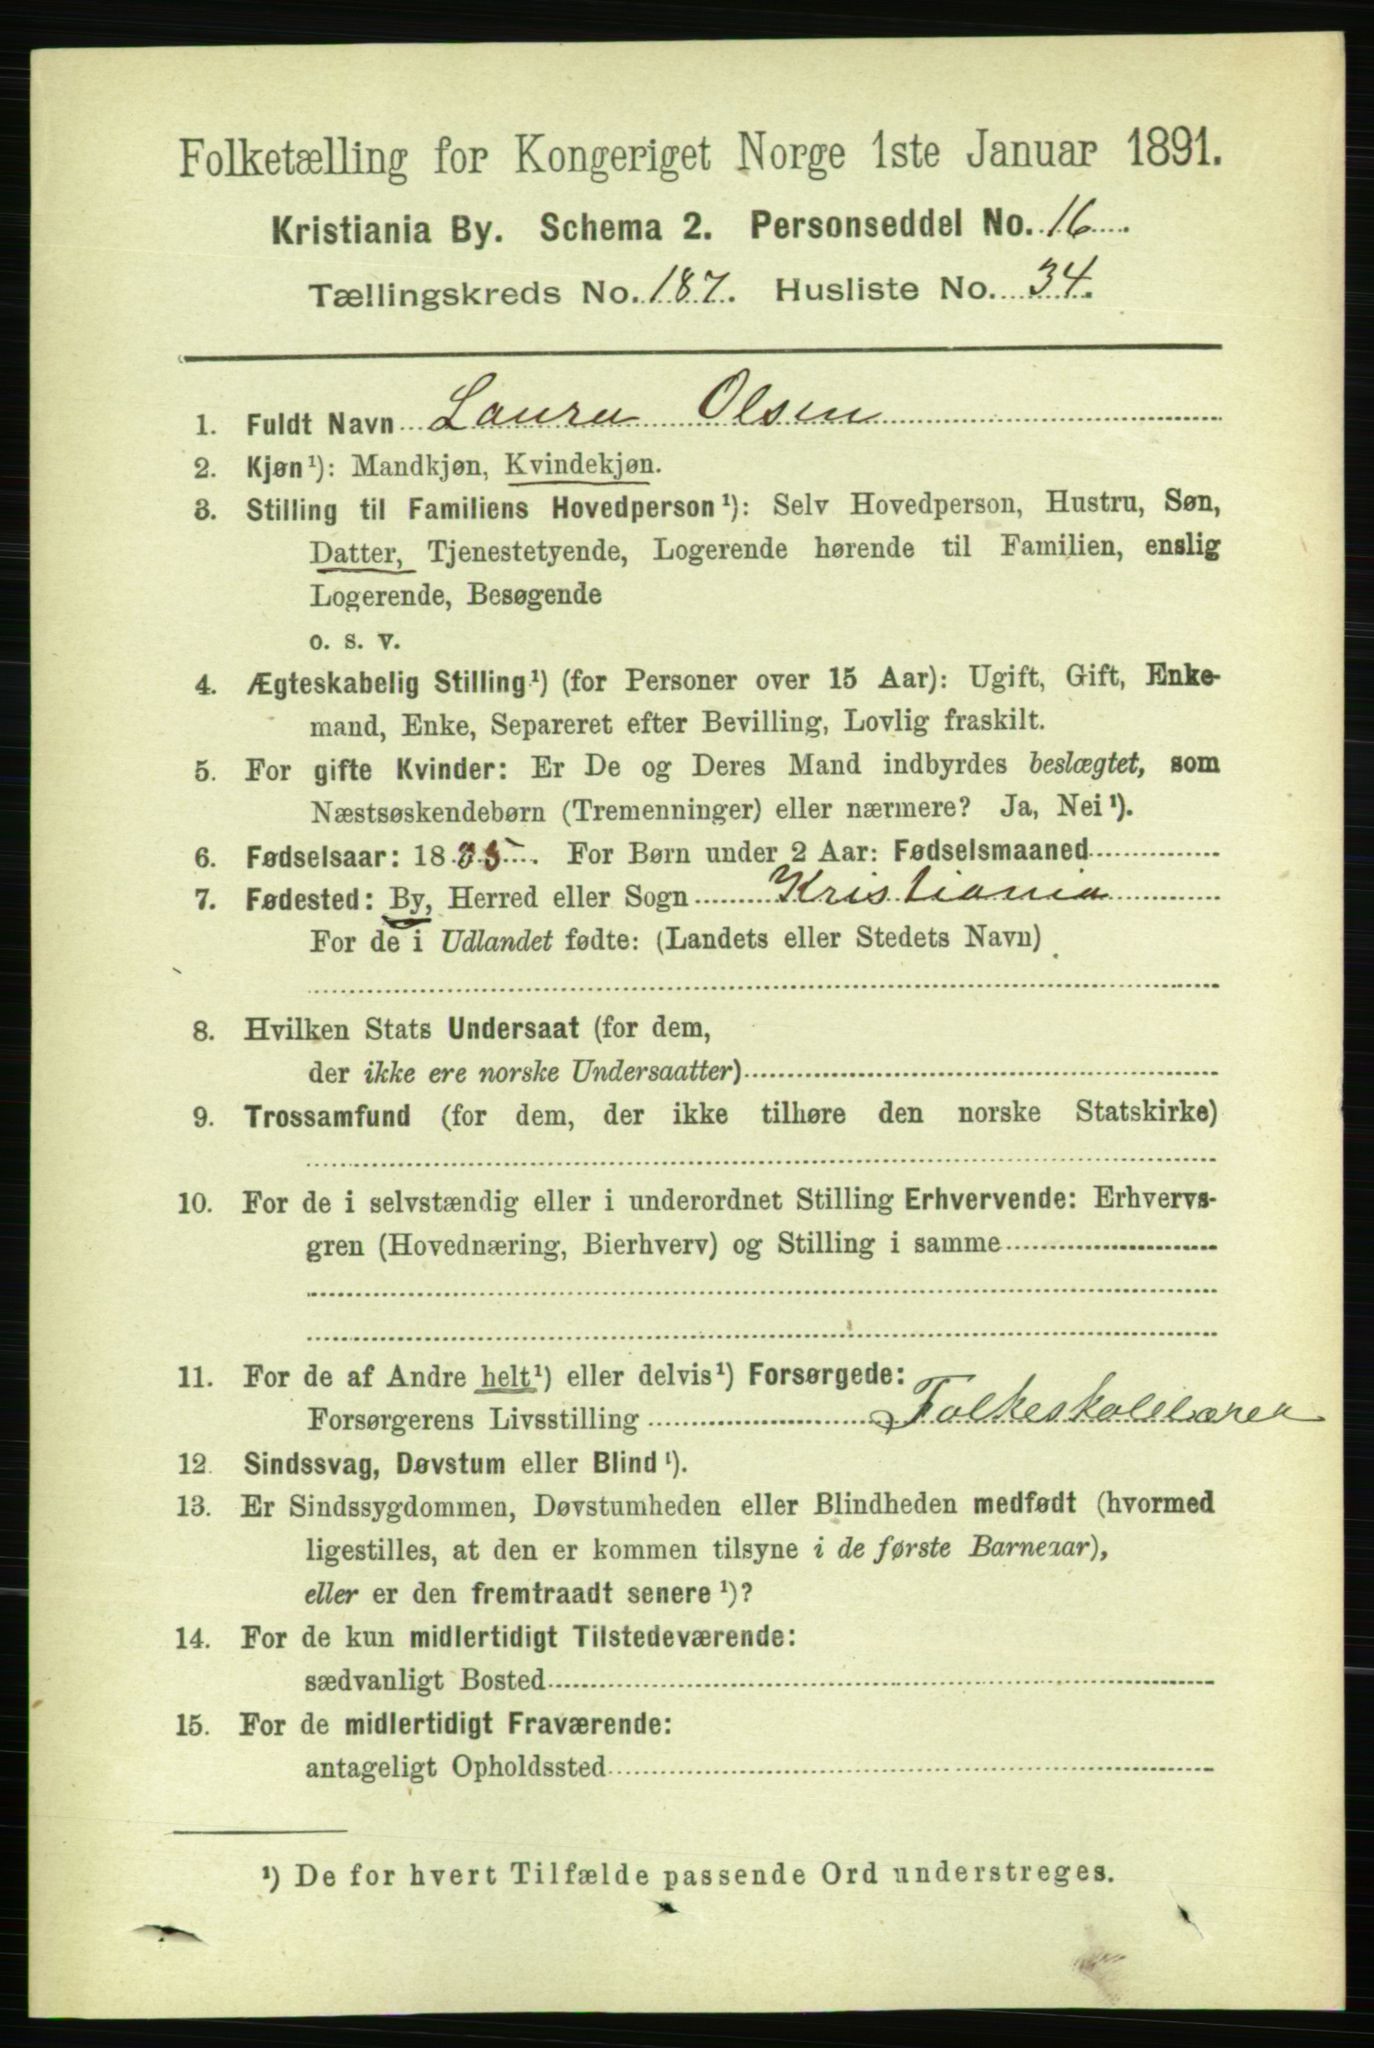 Folketælling for Kongeriget Norge 1ste Januar 1891.
Kristiania By. Schema 2. Personseddel No. 16
Tællingskreds No. 187. Husliste No. 34.
1. Fuldt Navn Laura Olsen
2. Kjøn ¹): Mandkjøn, Kvindekjøn.
3. Stilling til Familiens Hovedperson ¹): Selv Hovedperson, Hustru, Søn,
Datter, Tjenestetyende, Logerende hørende til Familien, enslig
Logerende, Besøgende
o. s. v.
4. Ægteskabelig Stilling ¹) (for Personer over 15 Aar): Ugift, Gift, Enke-
mand, Enke, Separeret efter Bevilling, Lovlig fraskilt.
5. For gifte Kvinder: Er De og Deres Mand indbyrdes beslægtet, som
Næstsøskendebørn (Tremenninger) eller nærmere? Ja, Nei ¹).
6. Fødselsaar: 18 . For Børn under 2 Aar: Fødselsmaaned
7. Fødested: By, Herred eller Sogn Kristiania
For de i Udlandet fødte: (Landets eller Stedets Navn)
8. Hvilken Stats Undersaat (for dem,
der ikke ere norske Undersaatter)
9. Trossamfund (for dem, der ikke tilhøre den norske Statskirke)
10. For de i selvstændig eller i underordnet Stilling Erhvervende: Erhvervs-
gren (Hovednæring, Bierhverv) og Stilling i samme
11. For de af Andre helt ¹) eller delvis ¹) Forsørgede:
Forsørgerens Livsstilling Folkeskolelærer
12. Sindssvag, Døvstum eller Blind ¹).
13. Er Sindssygdommen, Døvstumheden eller Blindheden medfødt (hvormed
ligestilles, at den er kommen tilsyne i de første Barneaar),
eller er den fremtraadt senere ¹)?
14. For de kun midlertidigt Tilstedeværende:
sædvanligt Bosted
15. For de midlertidigt Fraværende:
antageligt Opholdssted
¹) De for hvert Tilfælde passende Ord understreges.